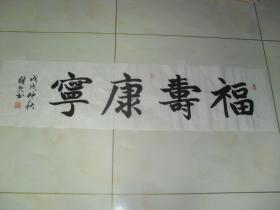 福壽康寧
戊戌仲秋